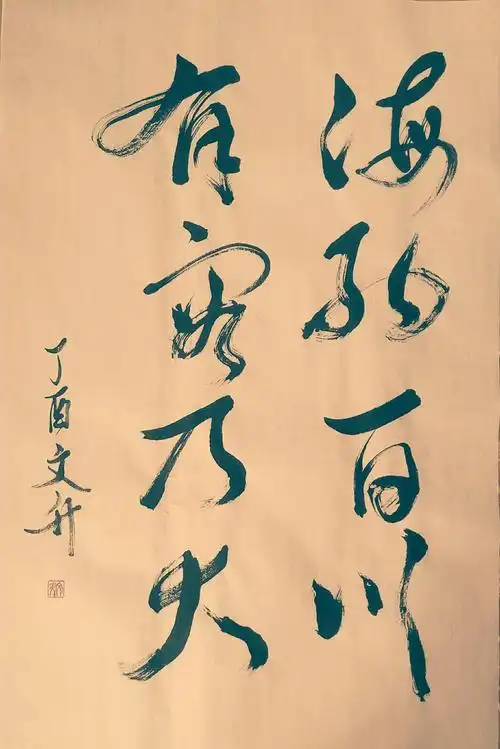 海纳百川
有容乃大
丁酉文升